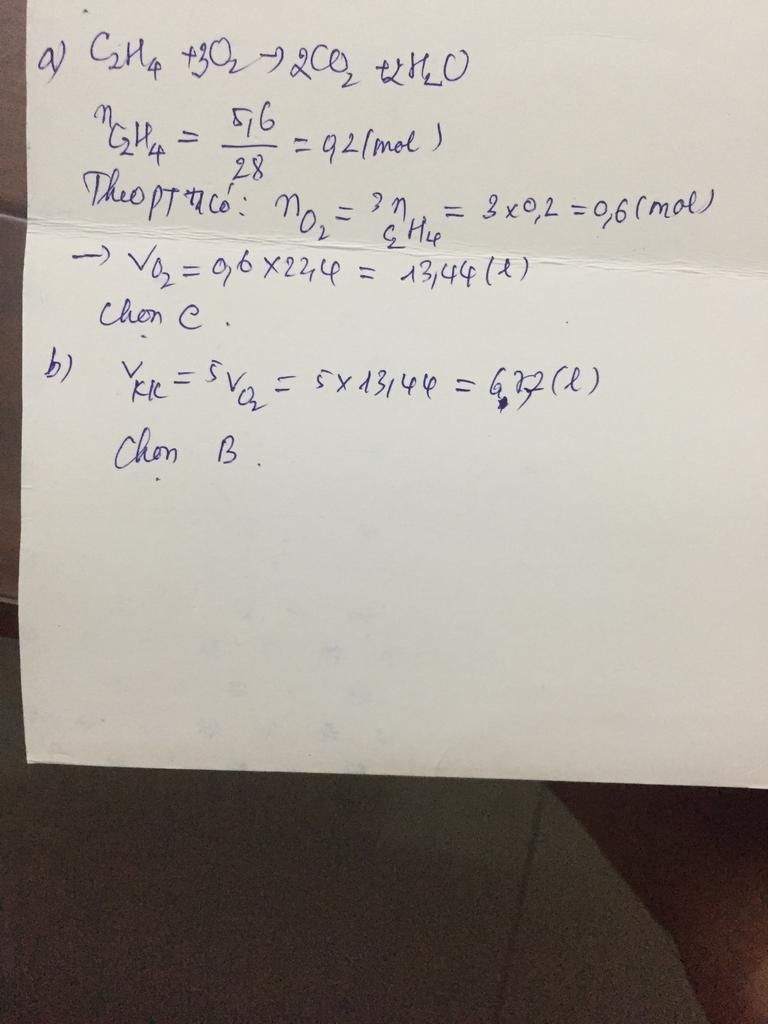 a) C2H4 +3O2 → 2CO2 +2H2O
nC2H4 = 5,6/28 = 0,2 (mol)
Theo PT ta có: nO2 = 3nC2H4 = 3 x 0,2 = 0,6 (mol)
→ VO2 = 0,6 x 22,4 = 13,44 (l)
Chọn C.
b) VKK = 5VO2 = 5 x 13,44 = 67,2 (l)
Chọn B.